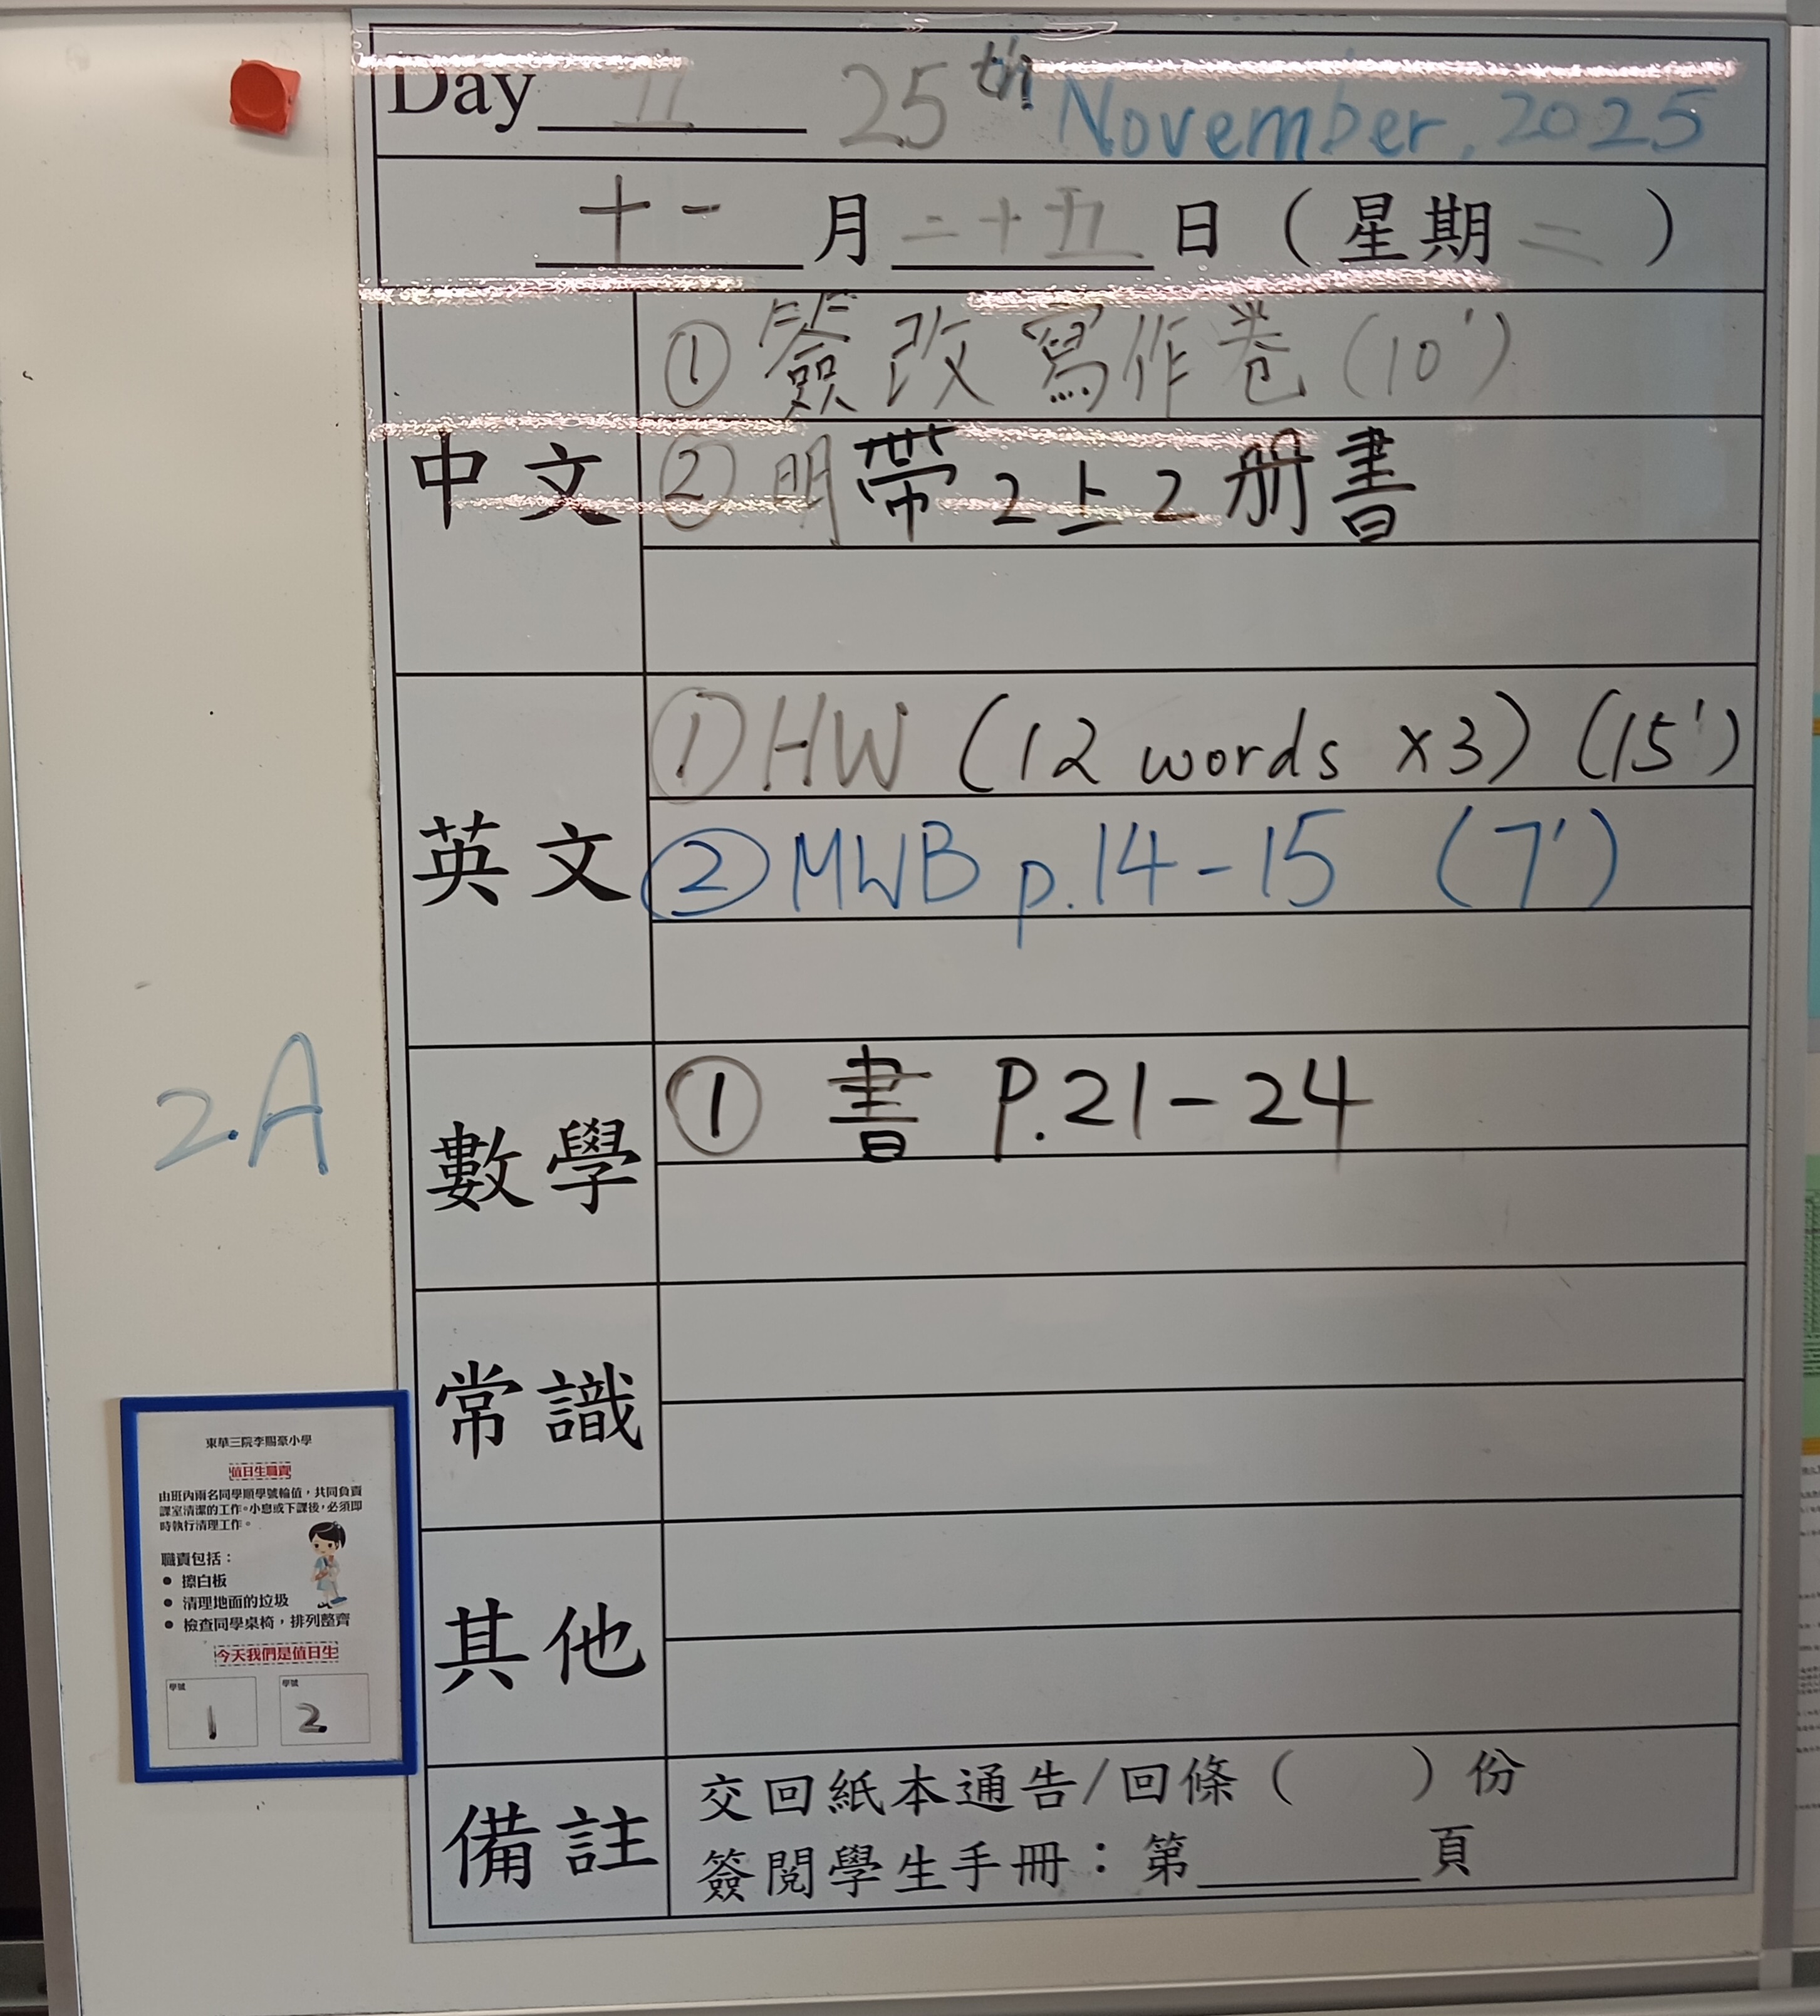 Day 五 25th November, 2025
十一月二十五日（星期二）
中文
① 簽改寫作卷(10')
② 明帶2上2册書
英文
① HW (12 words x3) (15')
② MWB p.14-15 (7')
2A
數學
① 書 P.21-24
常識
其他
備註
交回紙本通告/回條（ ）份
簽閱學生手冊：第______頁
東華三院李賜豪小學
值日生職責
由班內兩名同學順學號輪值，共同負責
課室清潔的工作。小息或下課後，必須即
時執行清理工作。
職責包括：
● 擦白板
● 清理地面的垃圾
● 檢查同學桌椅，排列整齊
今天我們是值日生
學號 學號
1 2